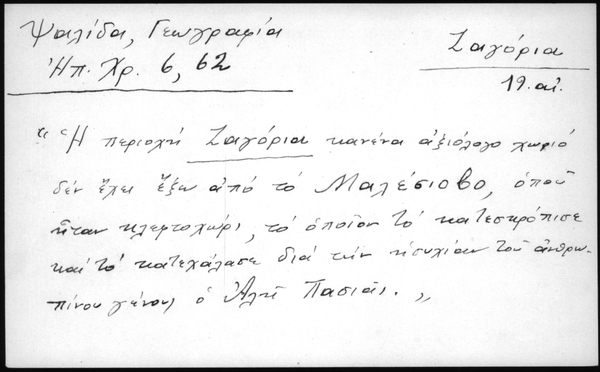 Ψαλίδα, Γεωγραφία
Ἠπ. Χρ. 6, 62
Ζαγόρια
19. αἰ.
"Ἡ περιοχή Ζαγόρια κανένα ἀξιόλογο χωριό
δέν ἔχει ἔξω ἀπό τό Μαλέσιοβο, ὁποῦ
ἦταν κλεφτοχώρι, τό ὁποῖον τό κατεσκρόπισε
καί τό κατεχάλασε διά τήν ἡσυχίαν τοῦ ἀνθρω-
πίνου γένους ὁ Ἀλῆ Πασιᾶς. „